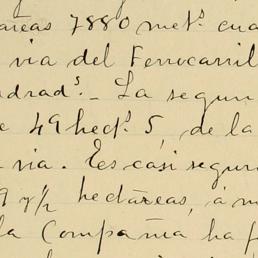 áreas 7880 metˢ. cua
via del Ferrocarril
adradˢ. - La segun
e 49 hectˢ. 5, de la
via. Es casi segur
9 y ½ hectáreas, á m
la Compañia ha f